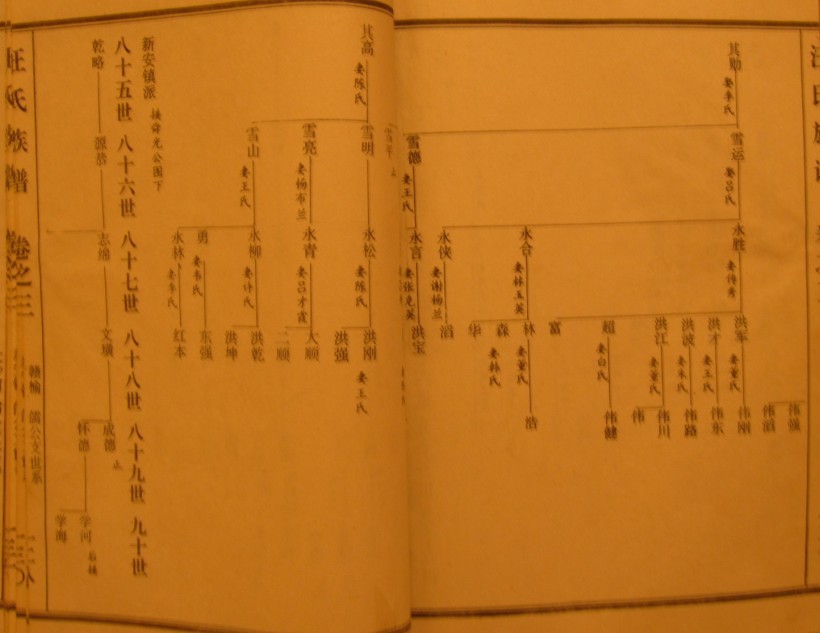 其勋
娶李氏
雪运
娶吕氏
雪德
娶王氏
永胜
娶传秀
永合
娶林玉英
永侠
娶谢杨兰
永言
娶张克英
洪军
娶董氏
洪才
娶王氏
洪波
娶朱氏
洪江
娶董氏
超
娶白氏
富
林
娶董氏
森
娶韩氏
华
滔
洪宝
伟强
伟滔
伟刚
伟东
伟路
伟川
伟
伟健
浩
其高
娶陈氏
雪明
雪亮
娶杨布兰
雪山
娶王氏
永松
娶陈氏
永青
娶吕才霞
永柳
娶许氏
勇
娶韦氏
永林
娶李氏
洪刚
娶王氏
洪强
大顺
二顺
洪乾
洪坤
东强
红本
新安镇派
接舜光公图下
八十五世 八十六世 八十七世 八十八世 八十九世 九十世
乾略
源恭
志绵
文璜
成德
怀德
学河
后续
学海
赣榆 儒公支世系
汪氏族谱 卷之三